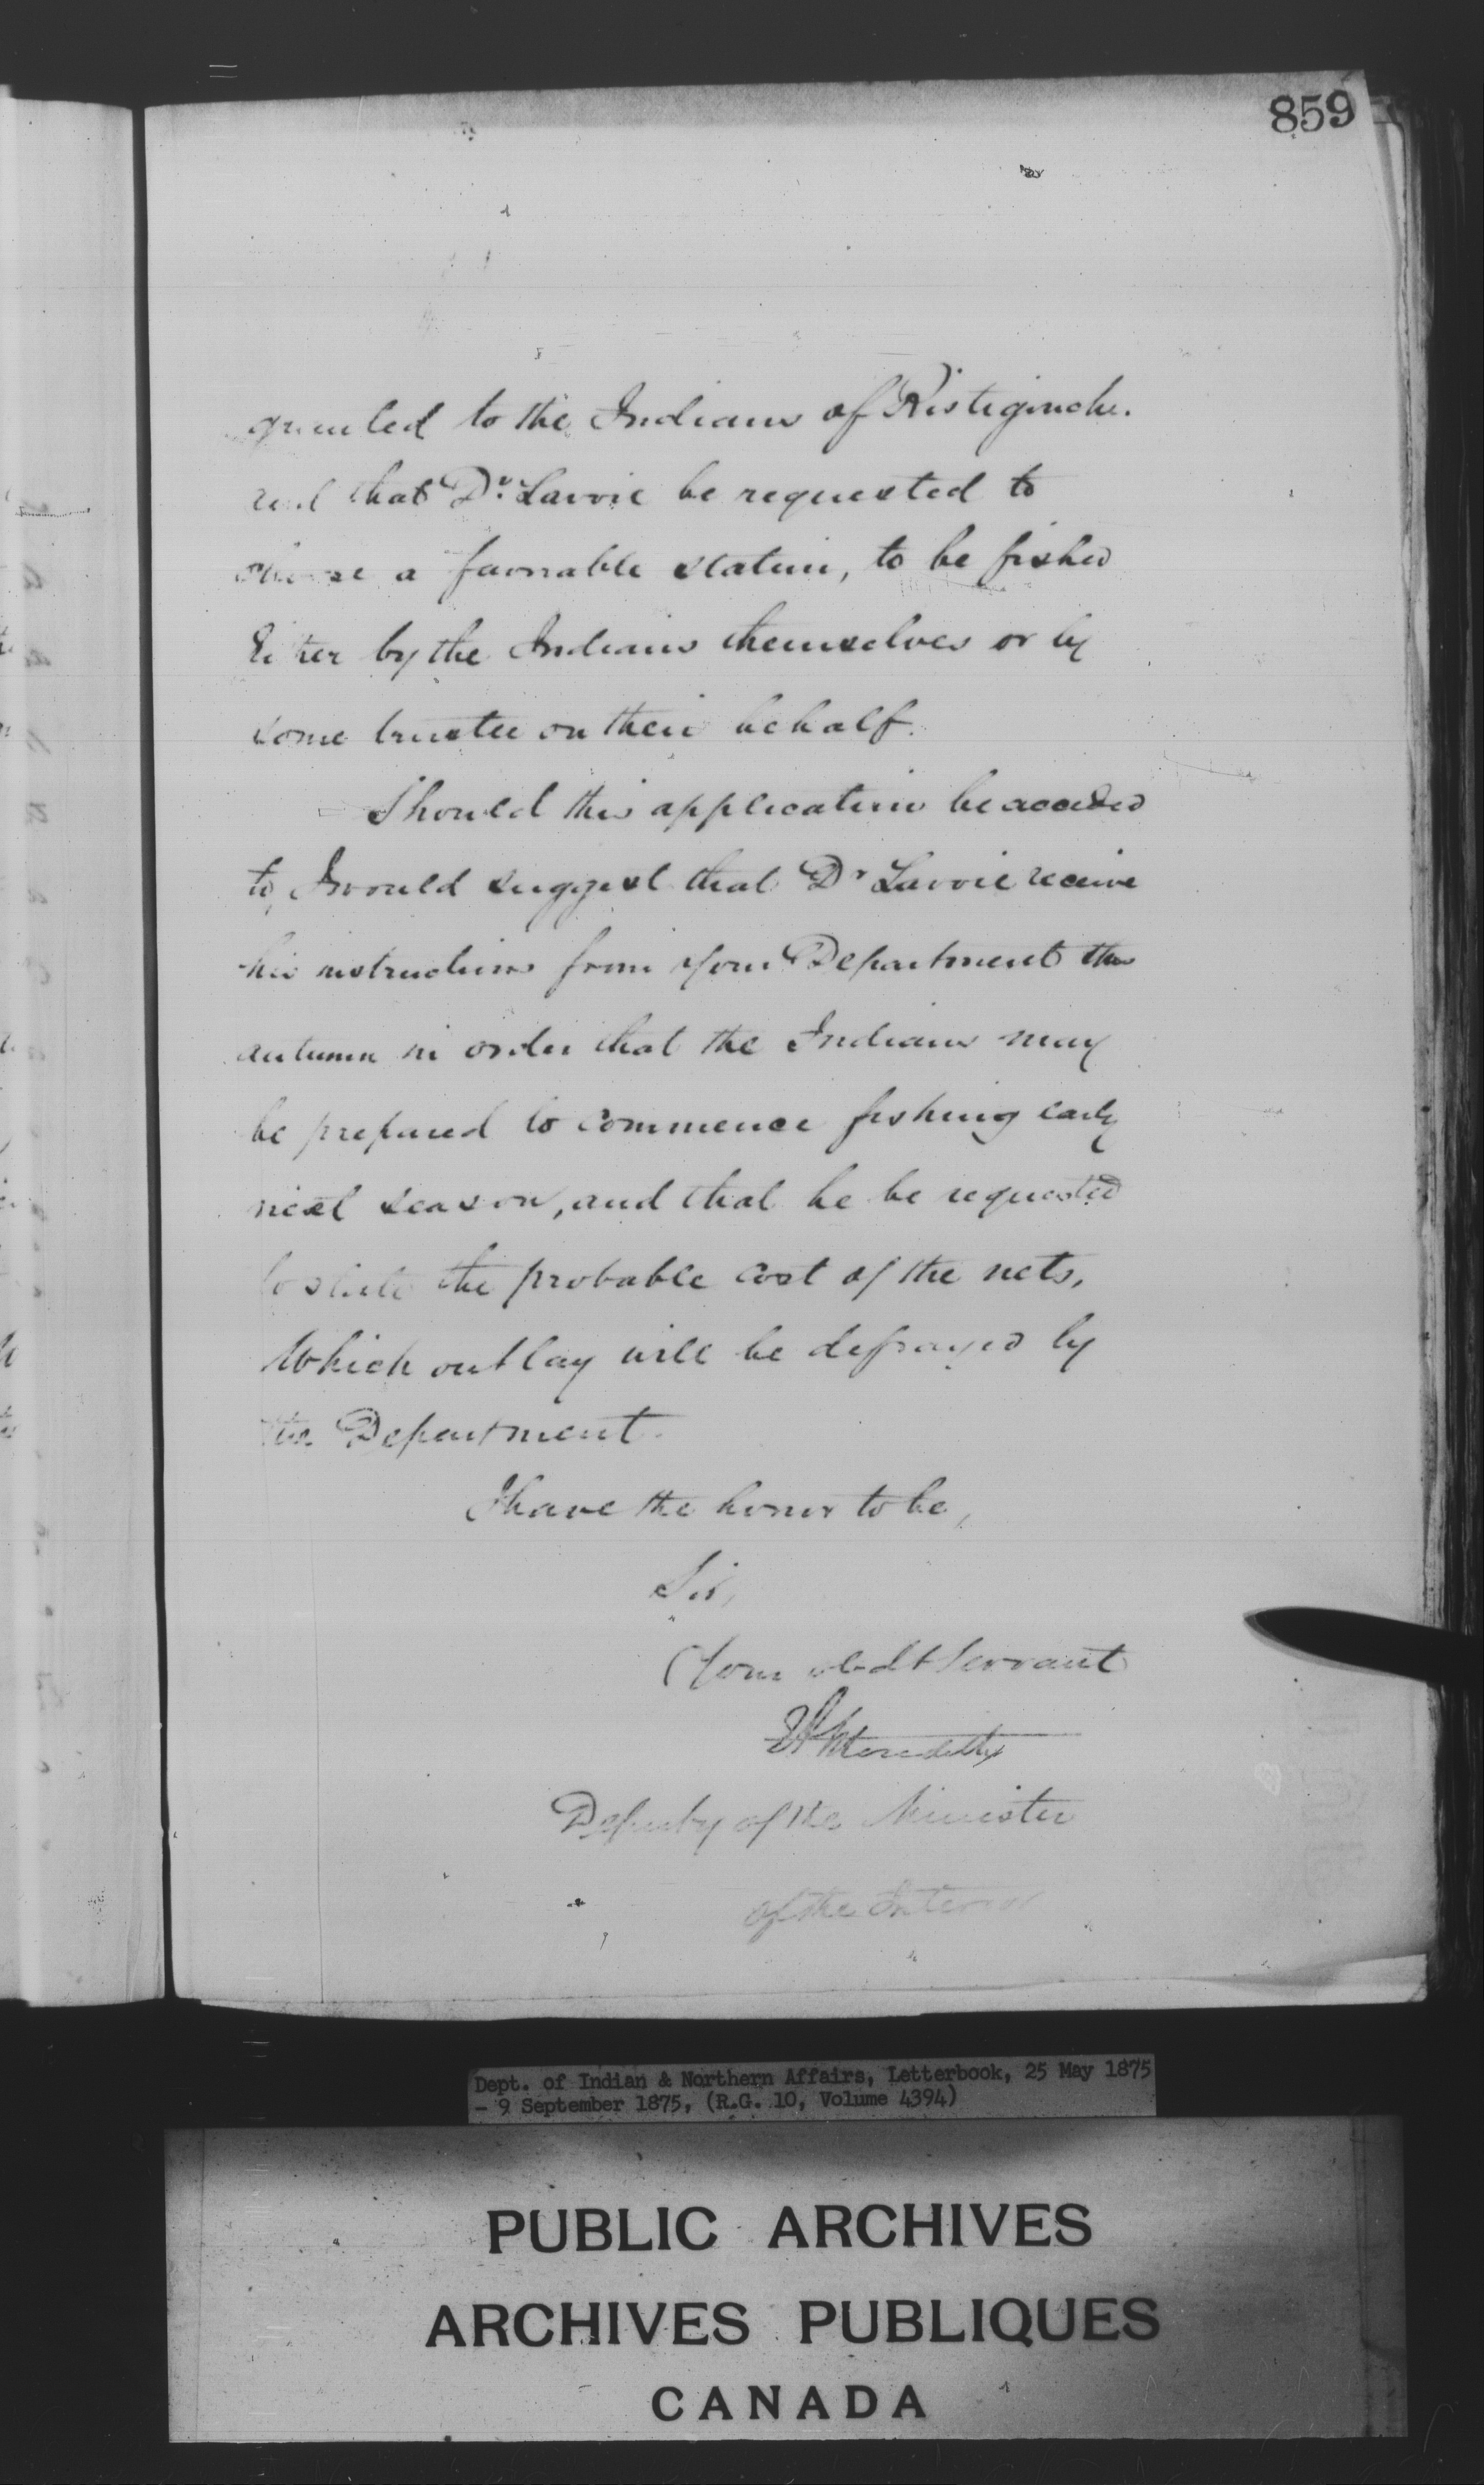 859
granted to the Indians of Ristigouche.
and that Dr. Lavoie be requested to
choose a favorable station, to be fished
Either by the Indians themselves or by
some trustee on their behalf.
Should this application be acceded
to, I would suggest that Dr Lavoie receive
his instructions from your Department this
autumn in order that the Indians may
be prepared to commence fishing early
next season, and that he be requested
to state the probable cost of the nets,
Which outlay will be defrayed by
the Department.
I have the honor to be,
Sir,
Your obdt Servant
Meredith
Deputy of the Minister
of the Interior
Dept. of Indian & Northern Affairs, Letterbook, 25 May 1875
- 9 September 1875, (R.G. 10, Volume 4394)
PUBLIC ARCHIVES
ARCHIVES PUBLIQUES
CANADA